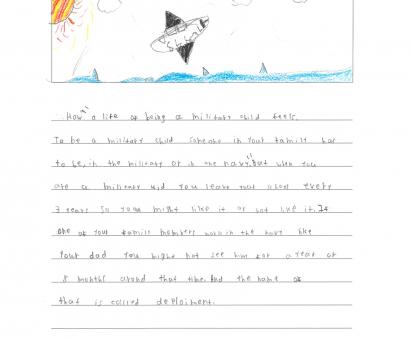 How a life of being a military child feels.
To be a military child someone in your family has
to be, in the military or in the navy. But when you
are a military kid you leave that school every
3 years so you might like it or not like it. If
one of your family members work in the navy like
Your dad you might not see him for a year or
8 months around that time. And the name of
that is called deploiment.